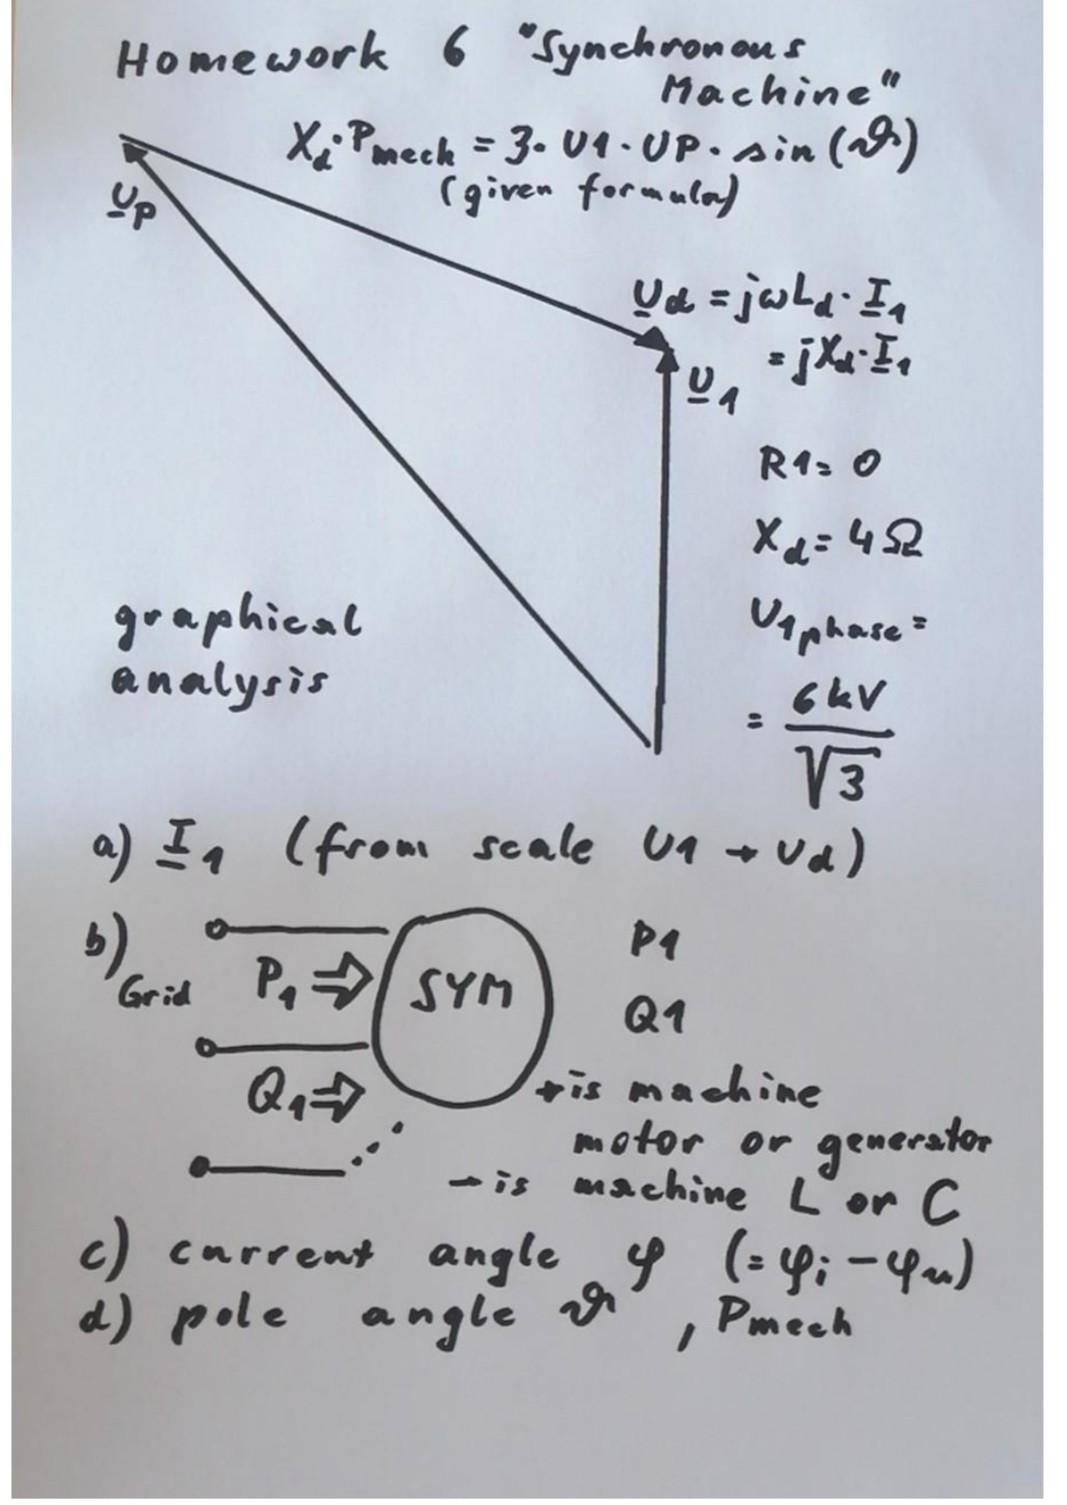 Homework 6 "Synchronous
Machine"
X_d · P_mech = 3 · U1 · UP · sin(ϑ)
(given formula)
U_p
U_d = jωL_d · I_1
= jX_d · I_1
U_1
R1 = 0
X_d = 4Ω
U_1phase =
= 6kV / √3
graphical
analysis
a) I_1 (from scale U1 → Ud)
b) Grid P_1 ⇒ SYM P1
Q_1 ⇒ Q1
→ is machine
motor or generator
→ is machine L or C
c) current angle φ (= φ_i - φ_u)
d) pole angle ϑ, Pmech